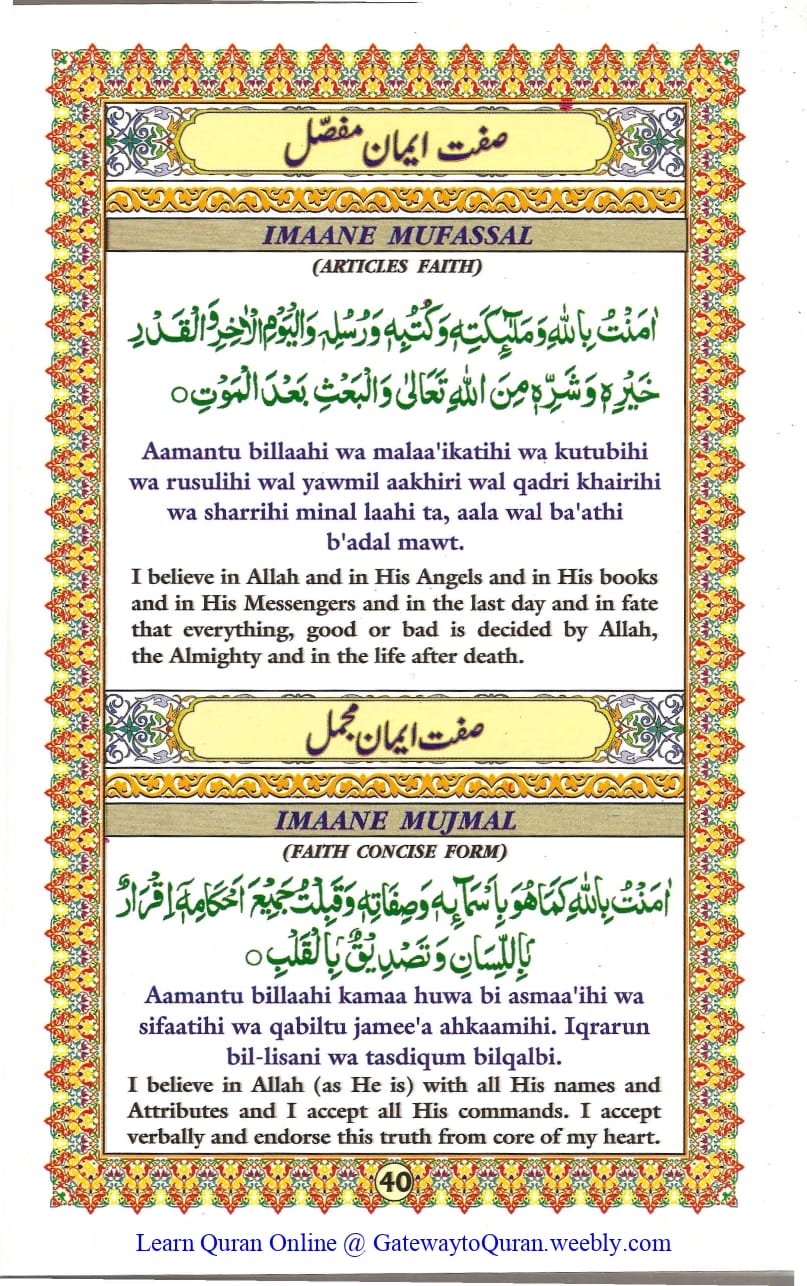 صفت ایمان مفصّل
IMAANE MUFASSAL
(ARTICLES FAITH)
اٰمَنْتُ بِاللهِ وَمَلٰٓئِكَتِهٖ وَكُتُبِهٖ وَرُسُلِهٖ وَالْيَوْمِ الْاٰخِرِ وَالْقَدْرِ
خَيْرِهٖ وَشَرِّهٖ مِنَ اللهِ تَعَالٰى وَالْبَعْثِ بَعْدَ الْمَوْتِ○
Aamantu billaahi wa malaa'ikatihi wa kutubihi
wa rusulihi wal yawmil aakhiri wal qadri khairihi
wa sharrihi minal laahi ta, aala wal ba'athi
b'adal mawt.
I believe in Allah and in His Angels and in His books
and in His Messengers and in the last day and in fate
that everything, good or bad is decided by Allah,
the Almighty and in the life after death.
صفت ایمان مجمل
IMAANE MUJMAL
(FAITH CONCISE FORM)
اٰمَنْتُ بِاللهِ كَمَا هُوَ بِاَسْمَآئِهٖ وَصِفَاتِهٖ وَقَبِلْتُ جَمِيْعَ اَحْكَامِهٖٓ اِقْرَارٌ
بِاللِّسَانِ وَتَصْدِيْقٌ بِالْقَلْبِ○
Aamantu billaahi kamaa huwa bi asmaa'ihi wa
sifaatihi wa qabiltu jamee'a ahkaamihi. Iqrarun
bil-lisani wa tasdiqum bilqalbi.
I believe in Allah (as He is) with all His names and
Attributes and I accept all His commands. I accept
verbally and endorse this truth from core of my heart.
40
Learn Quran Online @ GatewaytoQuran.weebly.com